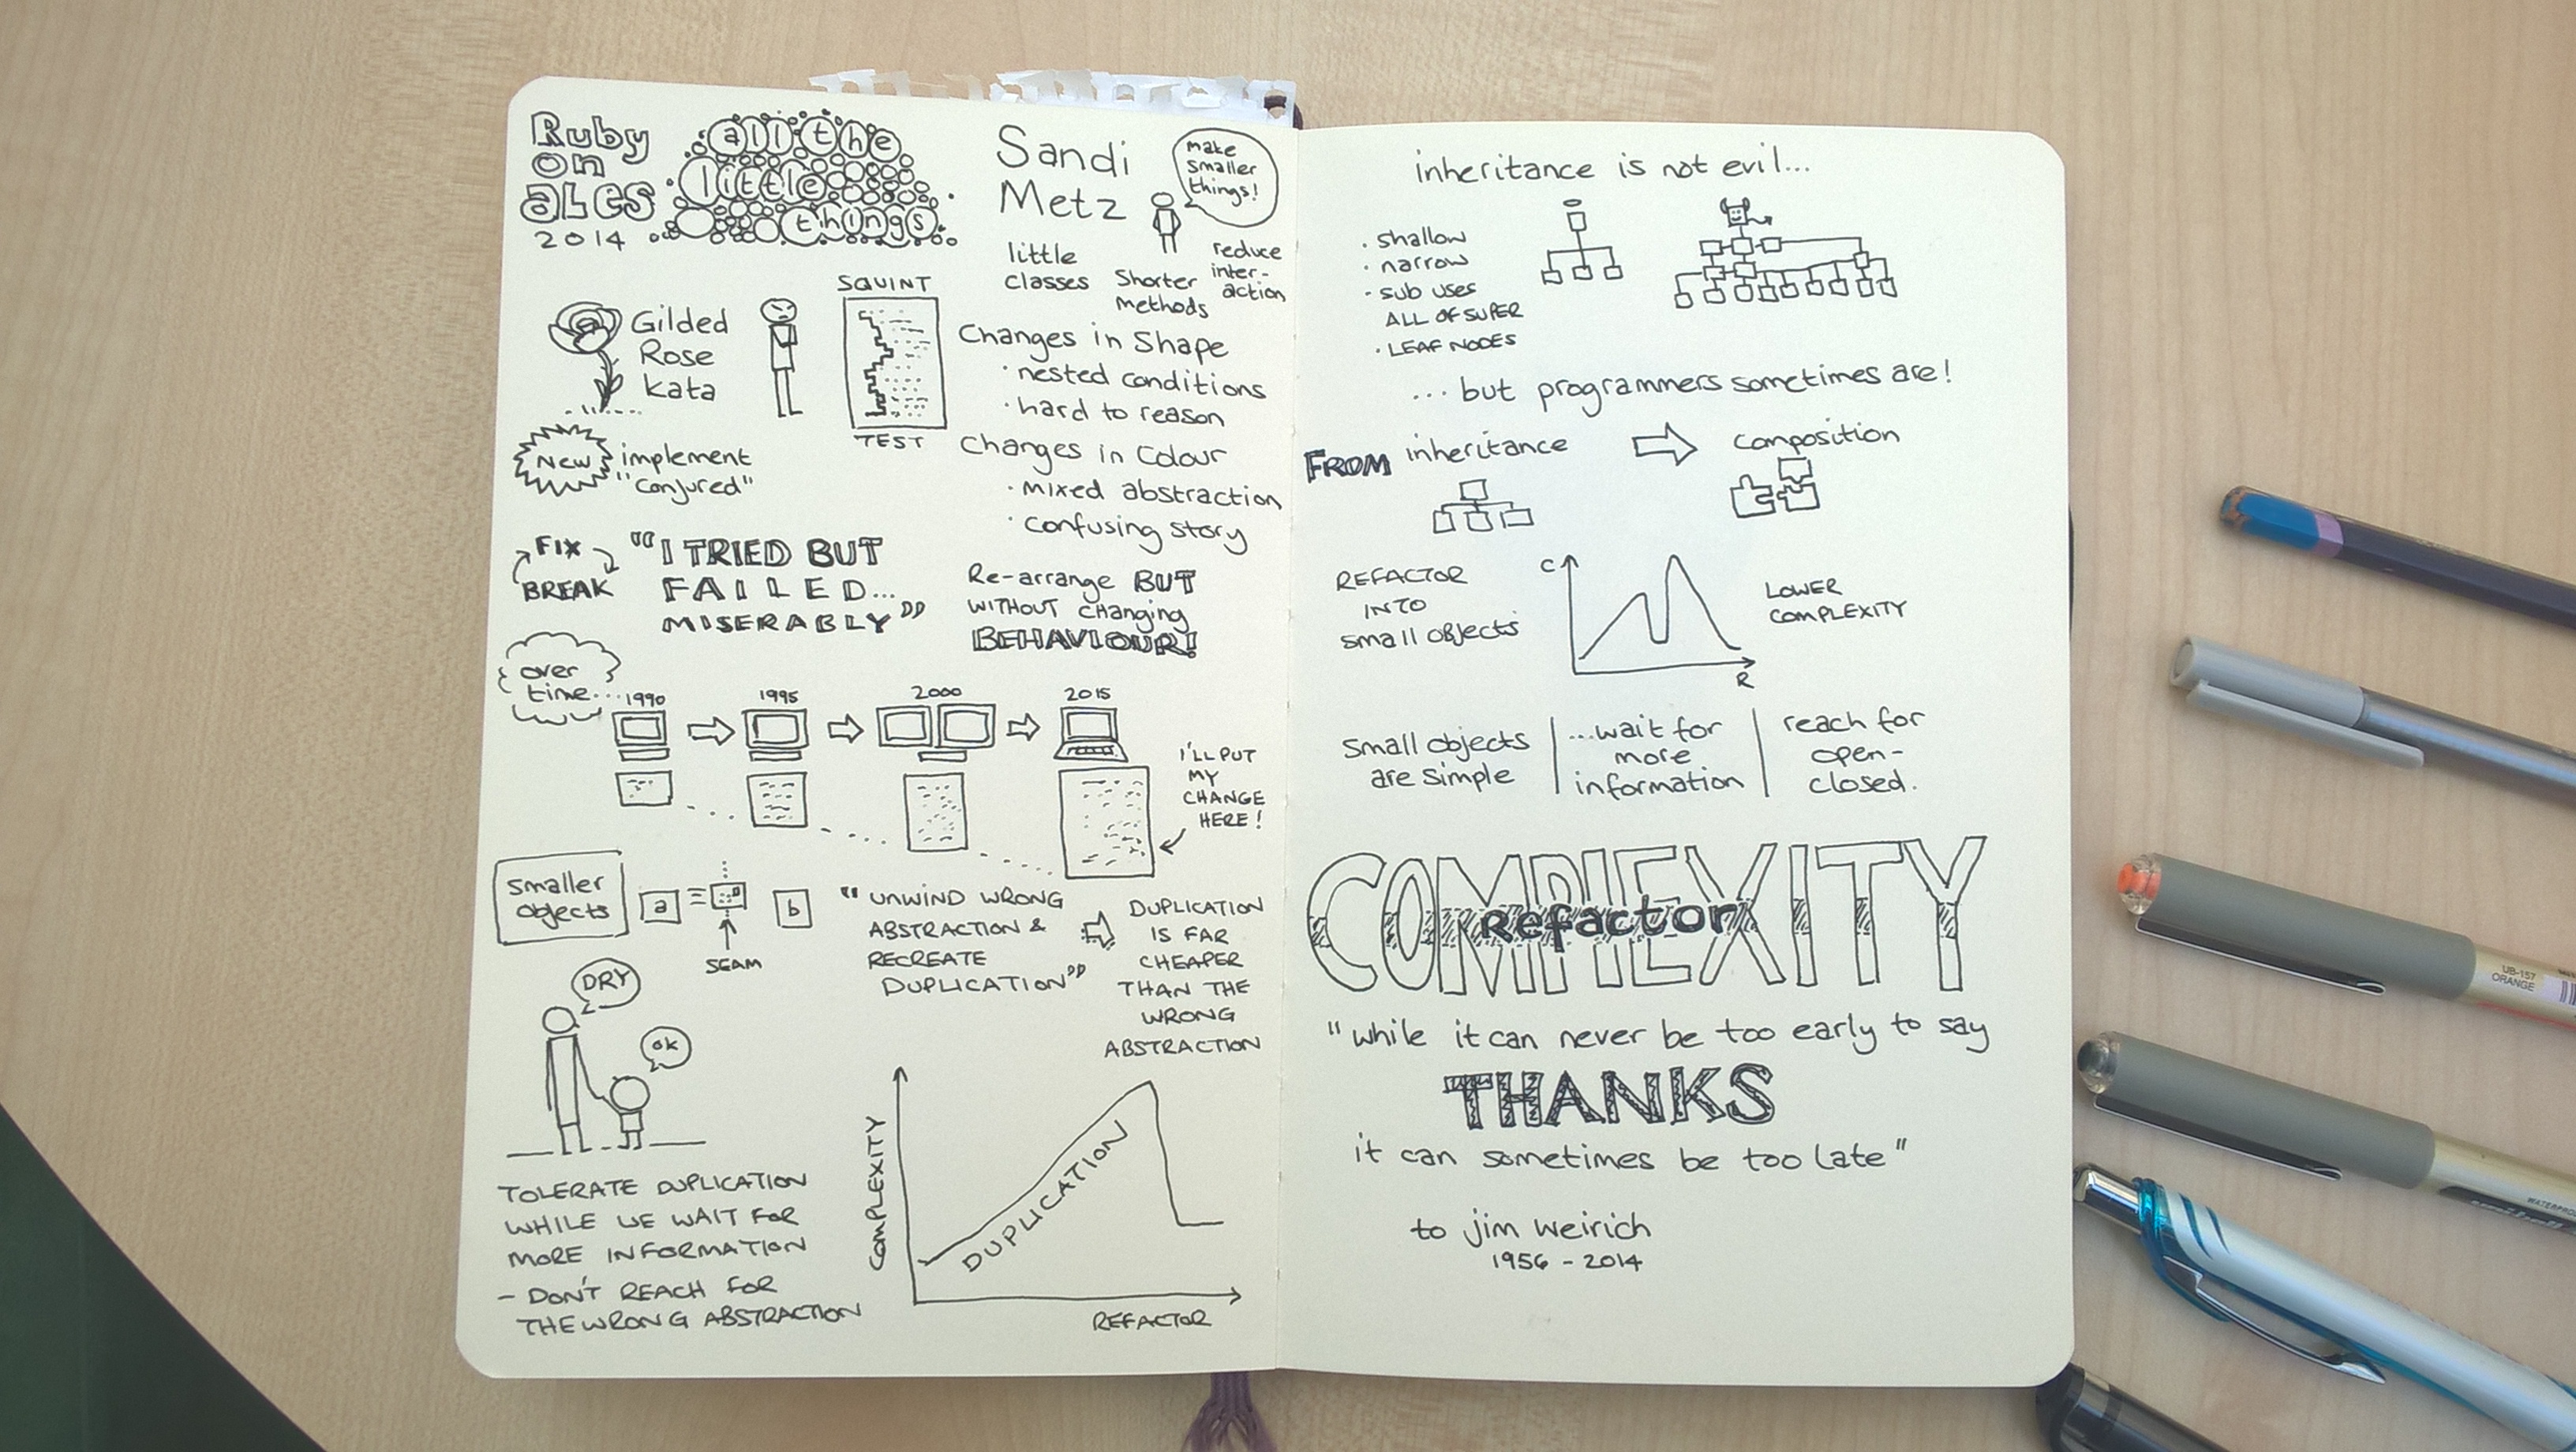 Ruby
on
ALES
2014
all the
little
things
Sandi
Metz
make
smaller
things!
little
classes
Shorter
methods
reduce
inter-
action
Gilded
Rose
Kata
SQUINT
TEST
Changes in Shape
· nested conditions
· hard to reason
Changes in Colour
· mixed abstraction
· confusing story
New
implement
"conjured"
FIX
BREAK
"I TRIED BUT
FAILED...
MISERABLY"
Re-arrange BUT
WITHOUT changing
BEHAVIOUR!
over
time...
1990
1995
2000
2015
I'LL PUT
MY
CHANGE
HERE!
smaller
objects
a
b
SEAM
"UNWIND WRONG
ABSTRACTION &
RECREATE
DUPLICATION"
DUPLICATION
IS FAR
CHEAPER
THAN THE
WRONG
ABSTRACTION
DRY
ok
TOLERATE DUPLICATION
WHILE WE WAIT FOR
MORE INFORMATION
- DON'T REACH FOR
THE WRONG ABSTRACTION
COMPLEXITY
DUPLICATION
REFACTOR
inheritance is not evil...
· shallow
· narrow
· sub uses
ALL OF SUPER
· LEAF NODES
...but programmers sometimes are!
FROM inheritance
composition
REFACTOR
INTO
small objects
C
R
LOWER
COMPLEXITY
small objects
are simple
...wait for
more
information
reach for
open-
closed.
COMPLEXITY
Refactor
"while it can never be too early to say
THANKS
it can sometimes be too late"
to jim weirich
1956 - 2014
UB-157
ORANGE